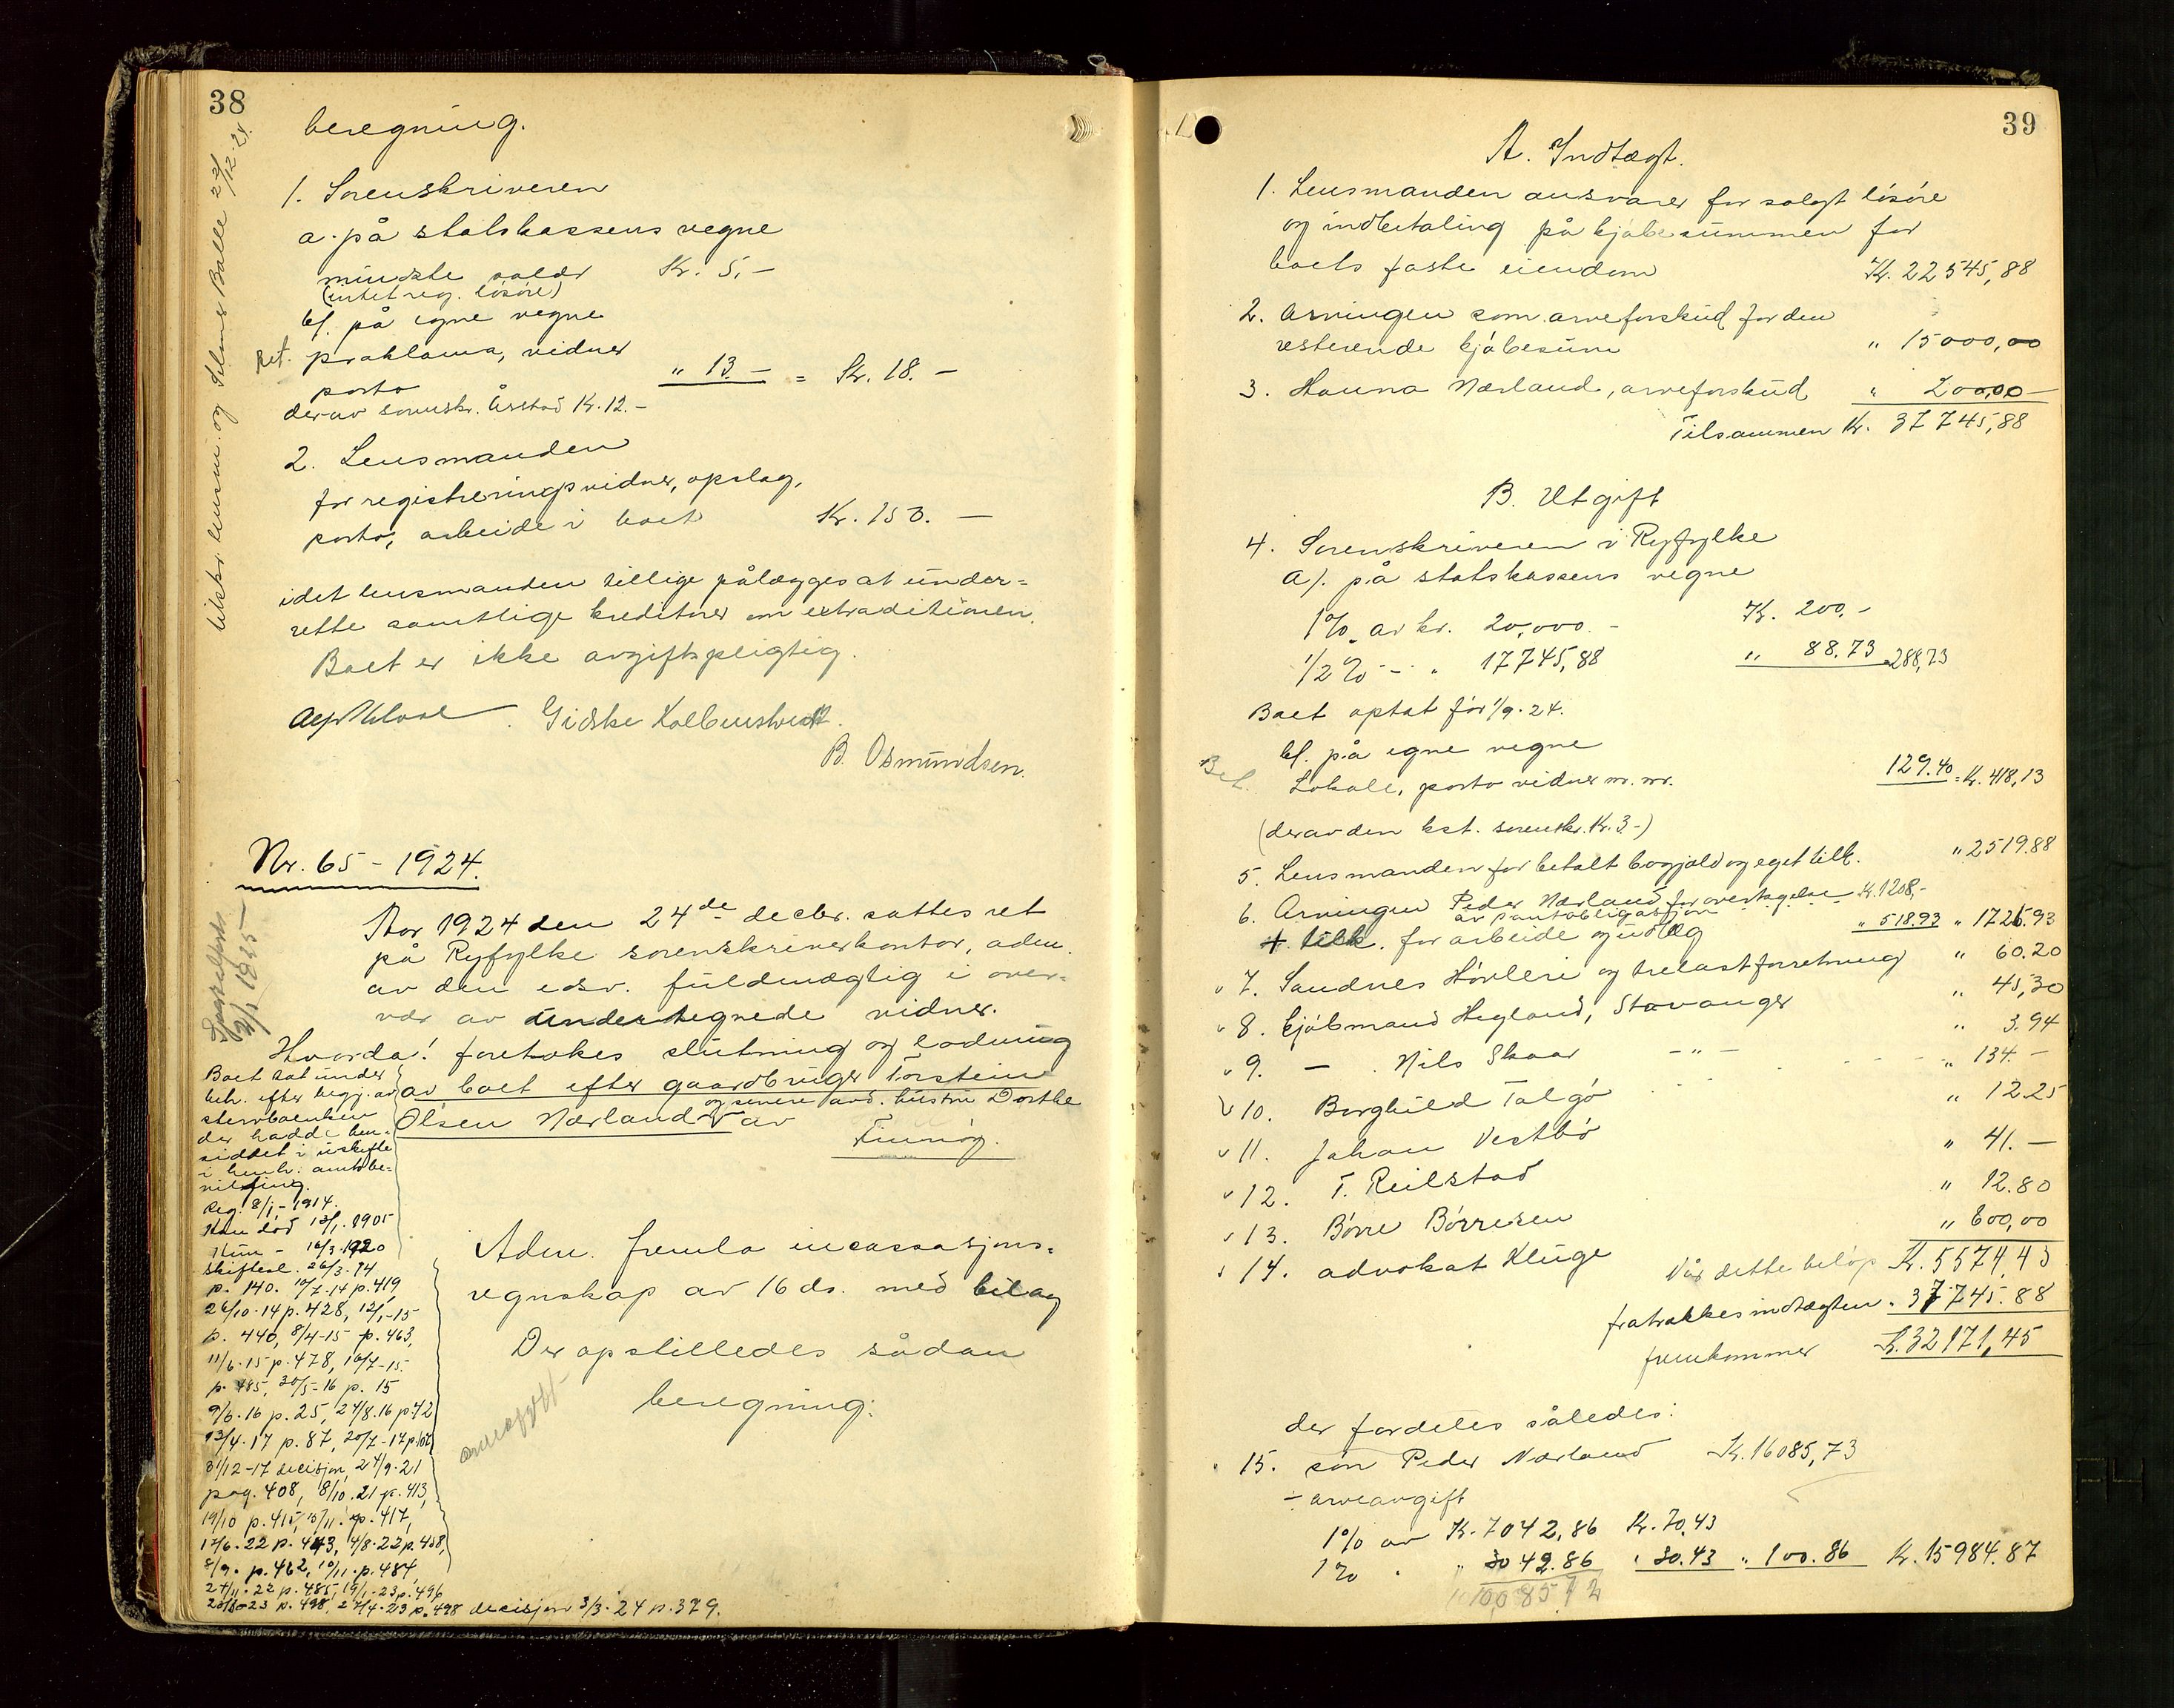 38
beregning.
1. Sorenskriveren
a. på statskassens vegne
mindste salær Kr. 5,-
(intet reg. løsøre)
b/. på egne vegne
proklama, vidner
porto " 13.- = Kr. 18.-
derav sorenskr. Årstad Kr. 12.-
2. Lensmanden
for registreringsvidner, opslag,
porto, arbeide i boet Kr. 153.-
idet lensmanden tillige pålægges at under=
rette samtlige kreditorer om extraditionen.
Boet er ikke avgiftspligtig.
Gidske
B. Osmundsen.
Nr. 65 - 1924.
Aar 1924 den 24de decbr. sattes ret
på Ryfylke sorenskriverkontor, adm.
av den edsv. fuldmægtig i over=
vær av undertegnede vidner.
Hvorda! foretokes slutning og lodning
av boet efter gaardbruger Torstein
og senere avd. hustru Dorthe
Olsen Nærland av
Finnøy.
Boet tat under
beh. efter begj. av
stervboenken
der hadde hen-
siddet i uskifte
i henh. amtsbe-
vilging.
Reg. 8/1 - 1914.
Han død 13/1. 1905
Hun - 16/3. 1920
Skiftesl. 26/3.14
p. 140. 10/7.14 p. 419,
26/10.14 p. 428, 12/1-15
p. 440, 8/4-15 p. 463,
11/6.15 p. 478, 16/7-15
p. 485, 30/5-16 p. 15
9/6.16 p. 25, 24/8.16 p 42
13/4.17 p. 87, 20/7-17 p.
31/12-17 decisjon, 24/9.21
pag. 408, 8/10.21 p. 413,
19/10 p. 415, p. 417,
17/6.22 p. 443, 4/8.22 p. 458,
8/9. p. 462, 10/11. p. 484,
24/11.22 p. 485, 19/1-23 p. 496,
p. 498, 27/4.23 p. 498 decisjon 3/3.24 p. 379.
Adm. fremla incassasjons=
regnskap av 16 ds. med bilag
Der opstilledes sådan
beregning:
39
A. Indtægt.
1. Lensmanden ansvarer for solgt løsøre
og indbetaling på kjøbesummen for
boets faste eiendom Kr. 22545,88
2. Arvingen som arveforskud for den
resterende kjøbesum " 15000,00
3. Hanna Nærland, arveforskud " 200,00
Tilsammen Kr. 37745,88
B. Utgift
4. Sorenskriveren i Ryfylke
a/. på statskassens vegne
1% av kr. 20,000.- Kr. 200,-
1/2% - - " 17745,88 " 88.73 288,73
Boet optat før 1/9.24.
b/. på egne vegne
Lokale, porto vidner m. m. 129.40 = Kr. 418,13
(derav den kst. sorenskr. Kr. 3-)
5. Lensmanden for betalt bogjæld og eget tilk. " 2519.88
6. Arvingen Peder Nærland for overtagelse Kr. 1208,-
av pantobligasjon
+ tilk. for arbeide og utlæg " 518.93 " 1726.93
7. Sandnes Høvleri og trelastforretning " 60.20
8. Kjøbmand Hegland, Stavanger " 45,30
9. - Nils Skaar - " - " 3.94
10. Borghild Talgø " 134.-
11. Johan Vestbø " 12.25
12. T. Reilstad " 41.-
13. Børre Børresen " 12.80
14. advokat Kluge " 600,00
Når dette beløp Kr. 5574,43
fratrækkes indtægten " 37745.88
fremkommer Kr. 32171,45
der fordeles således:
15. søn Peder Nærland Kr. 16085,73
÷ arveavgift
1% av Kr. 7042,86 Kr. 70,43
1% " " 3042.86 " 30.43 " 100.86 Kr. 15984.87